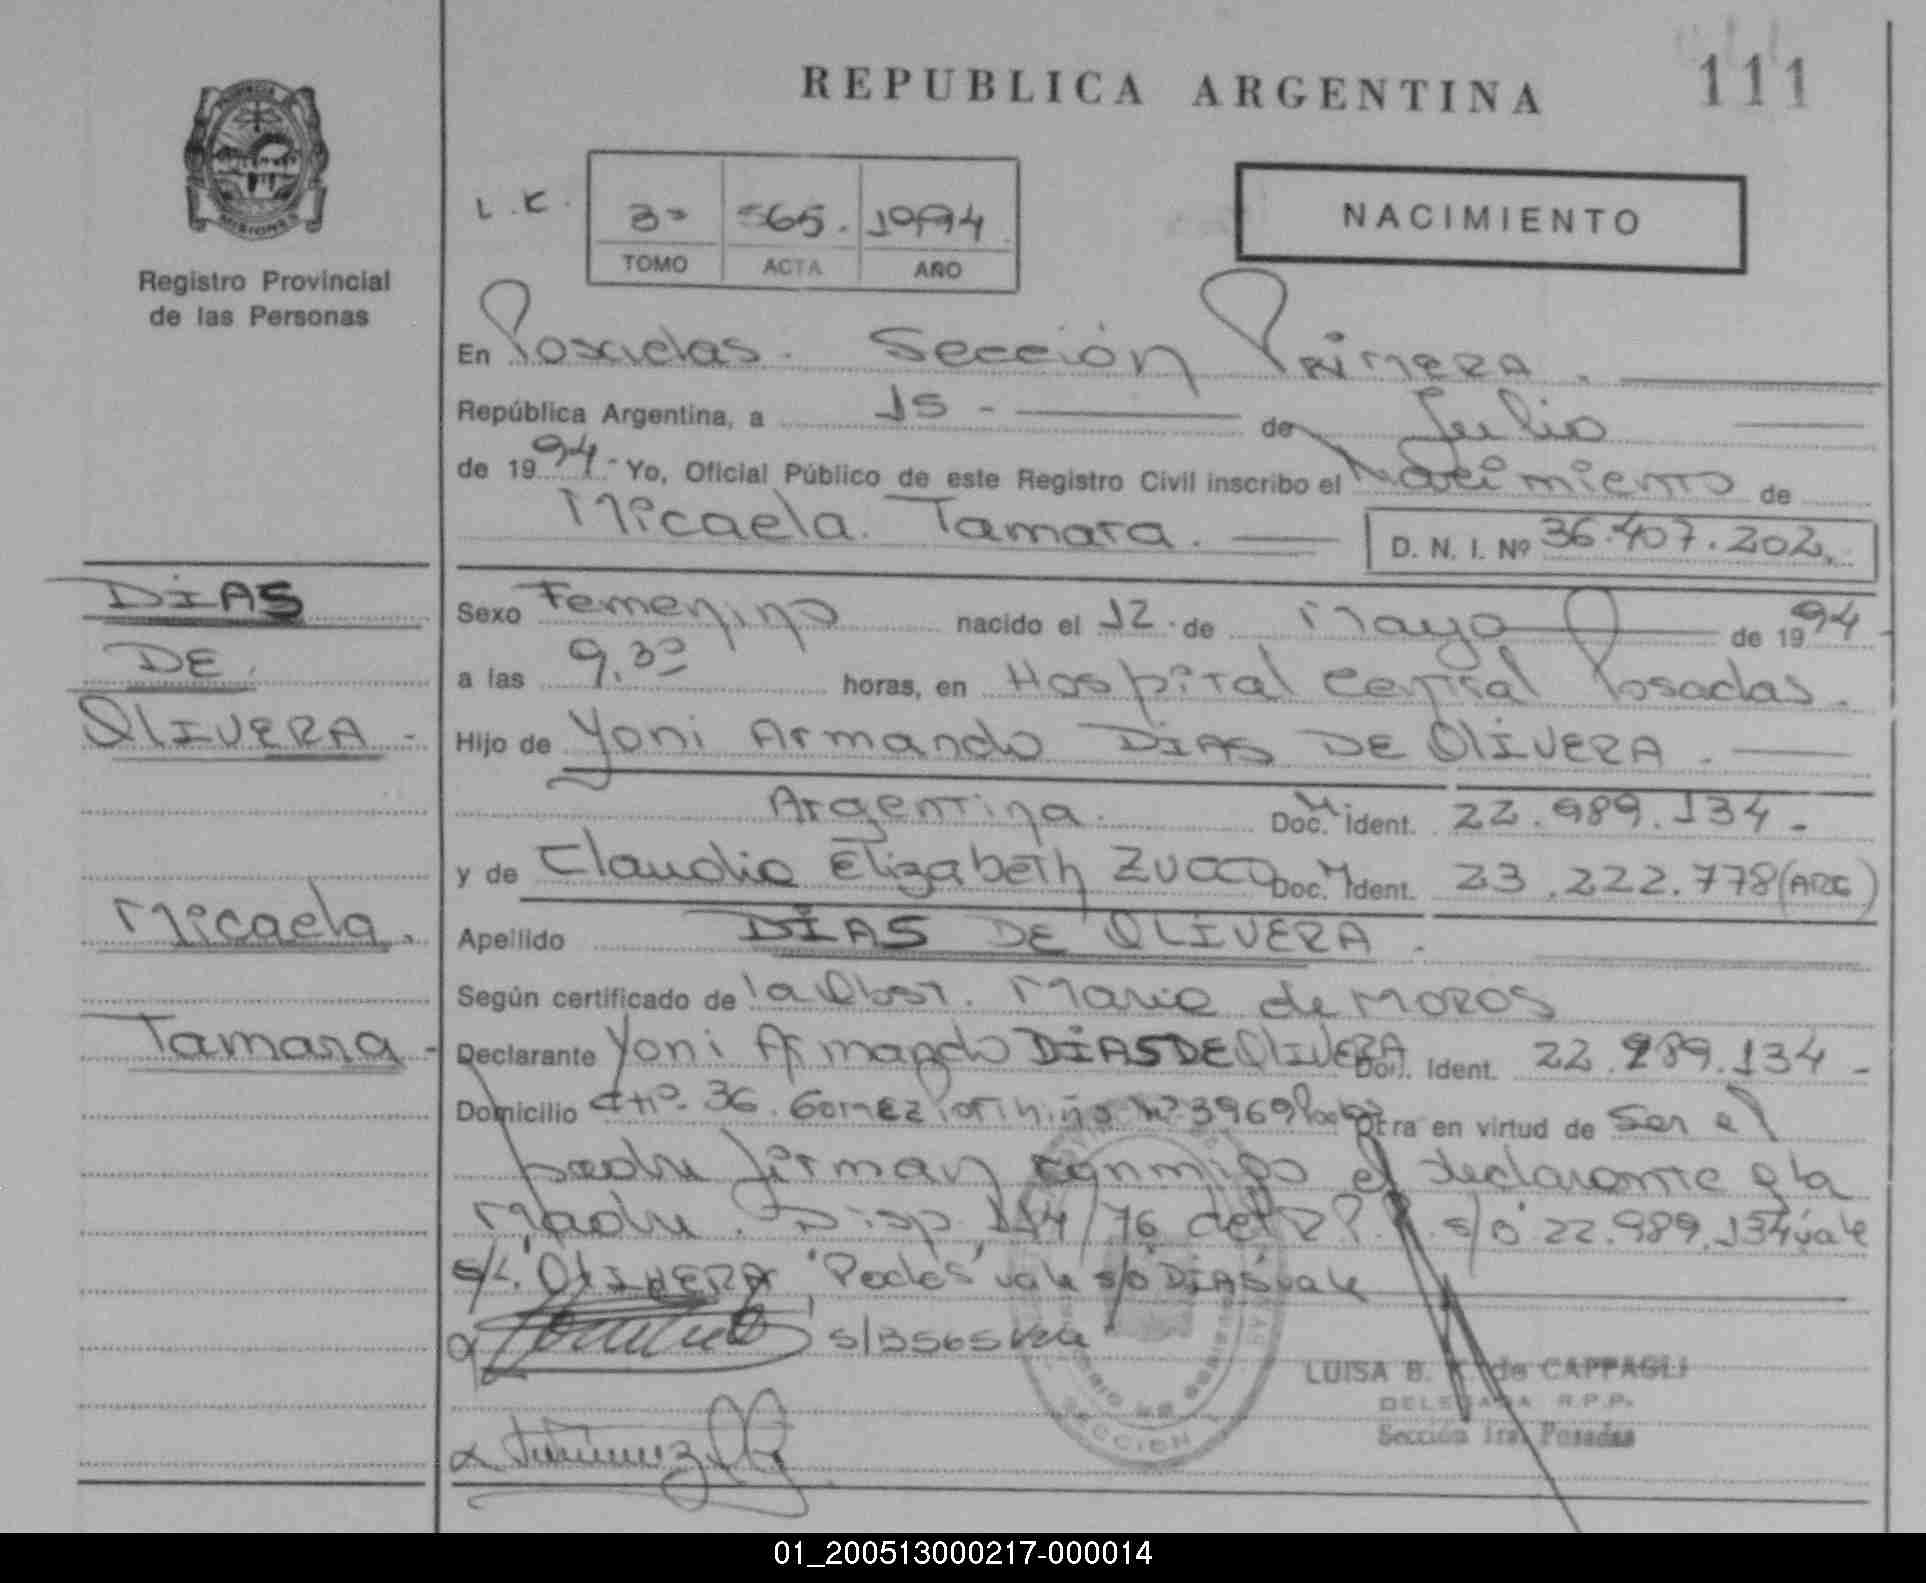 REPUBLICA ARGENTINA
111
PROVINCIA
MISIONES
Registro Provincial
de las Personas
L.C. 3º 565. 1994
TOMO ACTA AÑO
NACIMIENTO
En Posadas. Sección Primera.
República Argentina, a 15 - de Julio
de 1994 - Yo, Oficial Público de este Registro Civil inscribo el Nacimiento de
Micaela Tamara. D. N. I. Nº 36.407.202.
DIAS
DE
OLIVERA -
Micaela.
Tamara -
Sexo Femenino nacido el 12 de Mayo de 1994 -
a las 9,30 horas, en Hospital Central Posadas.
Hijo de Yoni Armando DIAS DE OLIVERA.
Argentina. Doc. M. Ident. 22.989.134 -
y de Claudia Elizabeth ZUCCO Doc. M. Ident. 23.222.778 (ARG)
Apellido DIAS DE OLIVERA.
Según certificado de la Obst. Maria de MOROS
Declarante Yoni Armando DIAS DE OLIVERA Doc. Ident. 22.989.134 -
Domicilio 36. Gomez Nº 3969 Obra en virtud de Ser el
padre firman conmigo el declarante y la
Madre. Disp. 114/76 del R.P. s/o 22.989.134 vale
s/L. OLIVERA, vale s/o DIAS vale
s/B 565 vale
LUISA B. de CAPPAGLI
DELEGADA R.P.P.
Sección 1ra. Posadas
SECCION
01_200513000217-000014